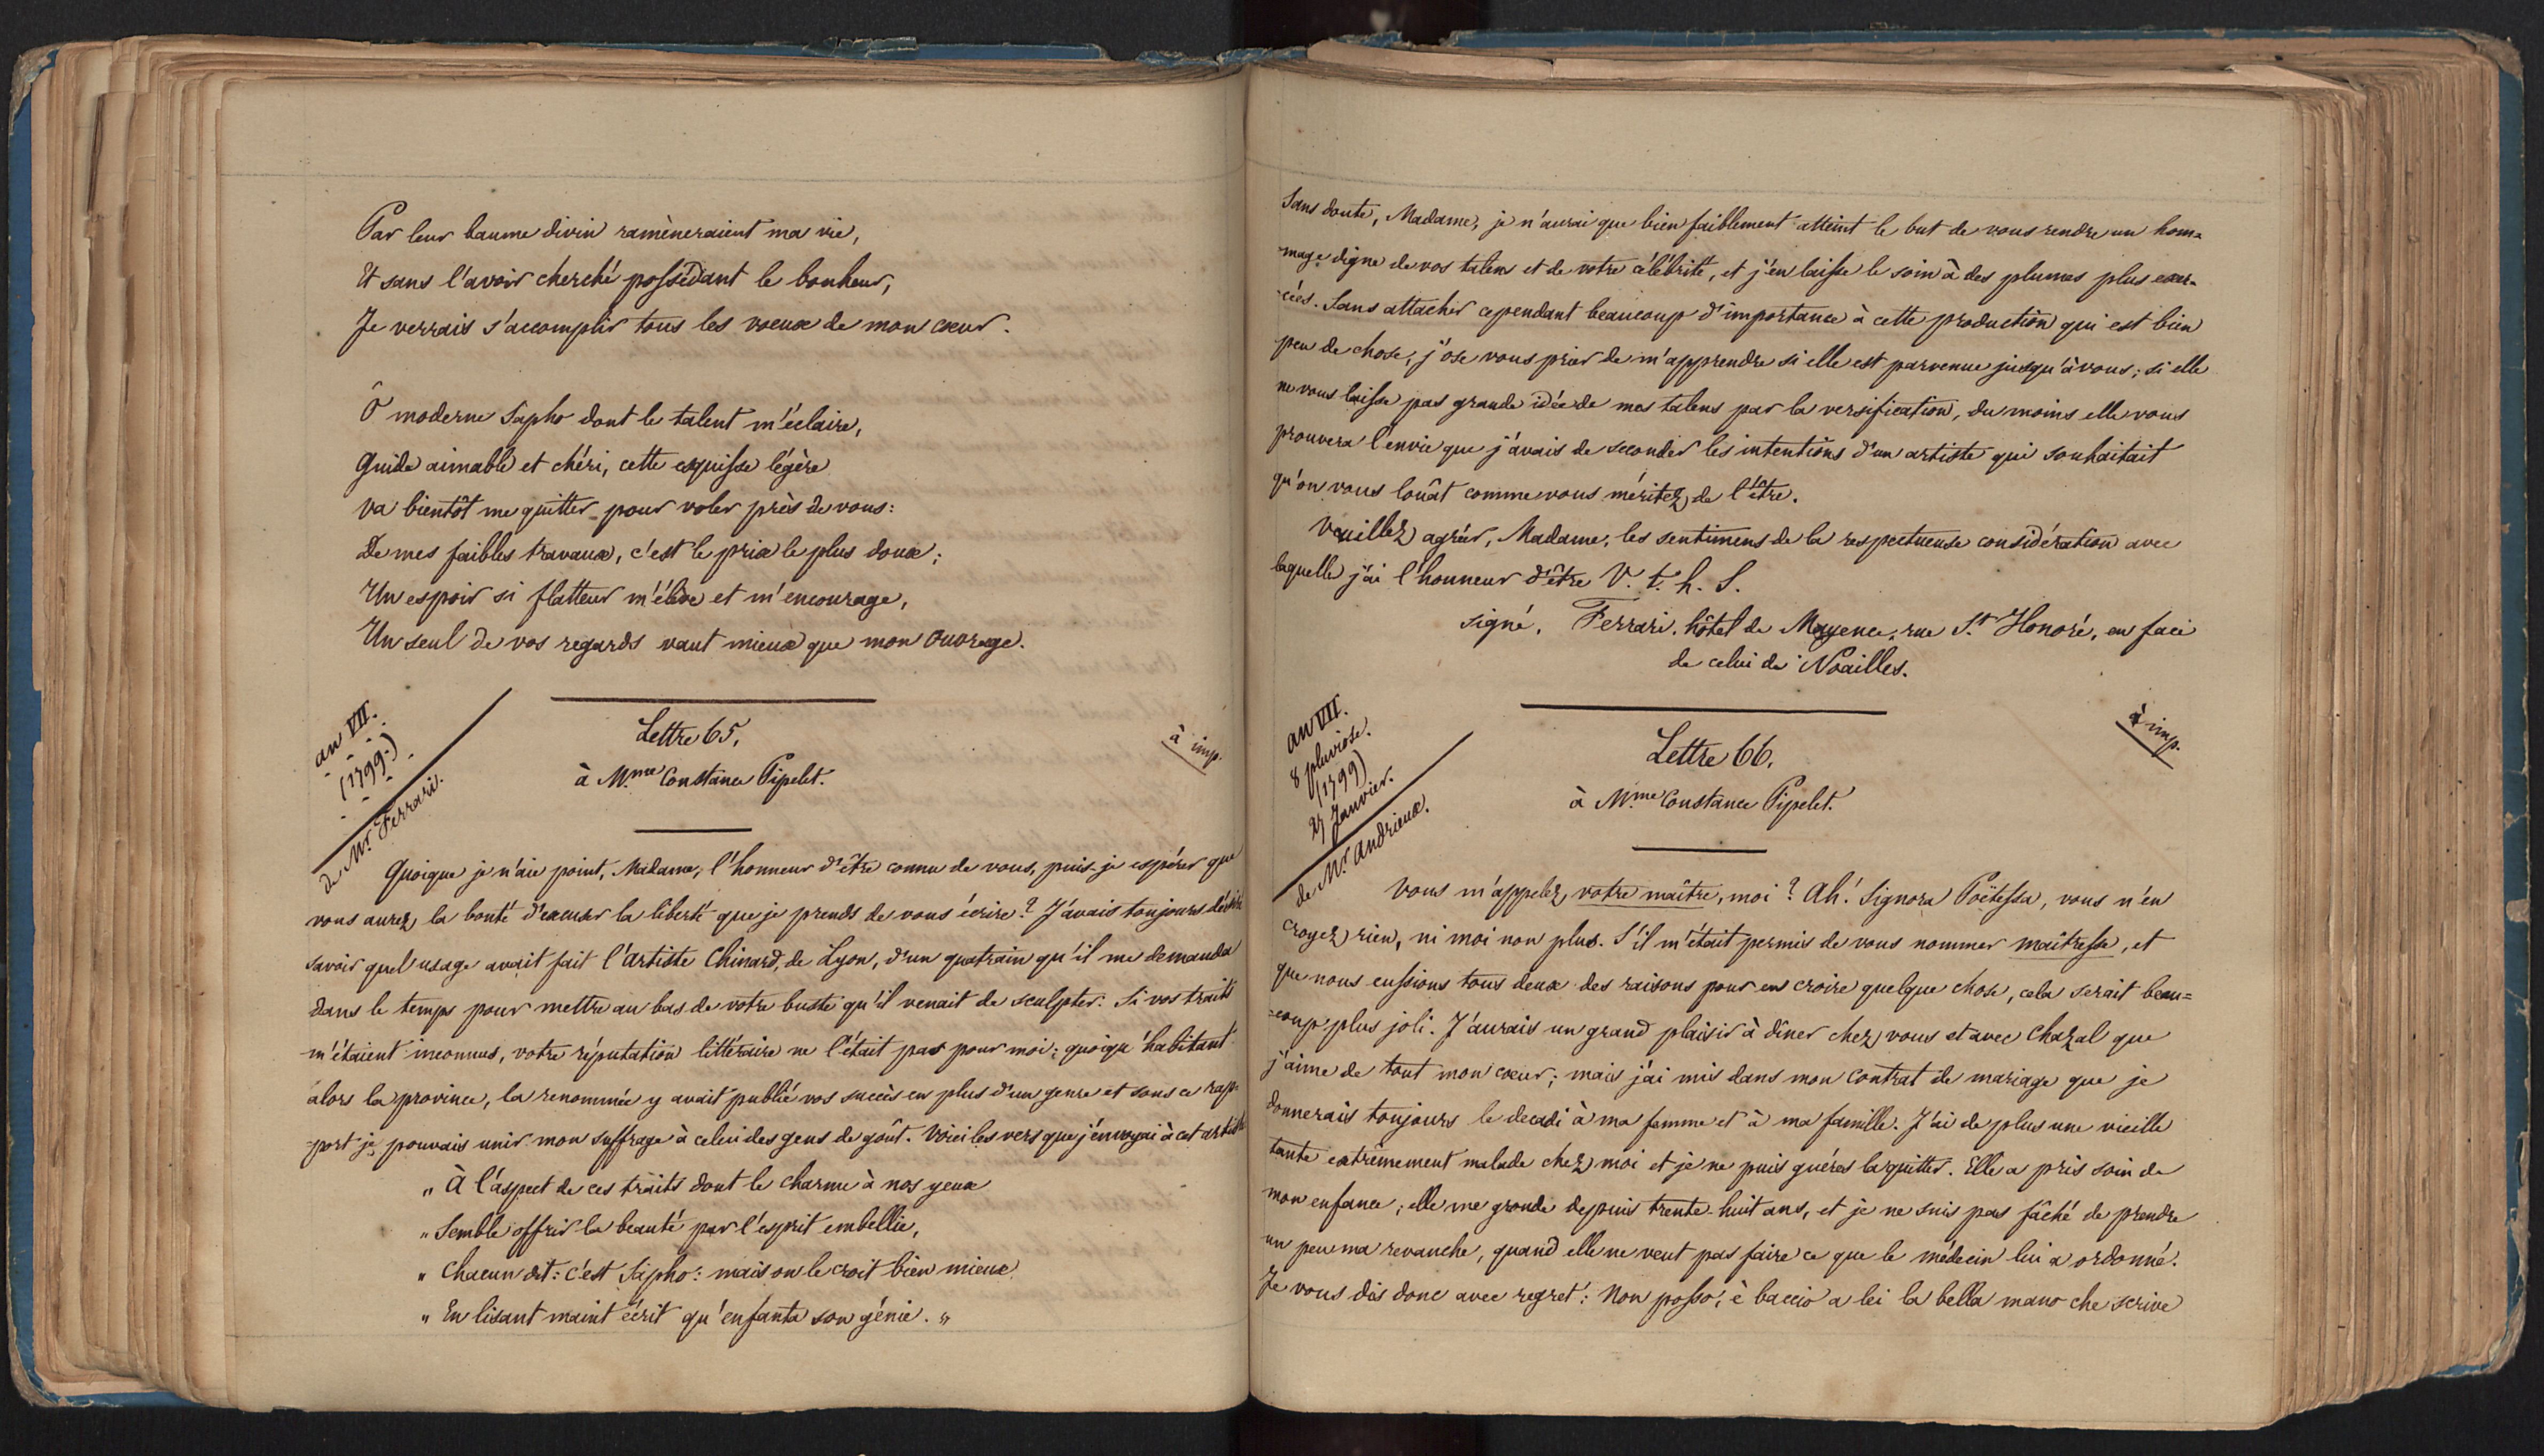 Par leur baume divin ramèneraient ma vie,
Et sans l'avoir cherché possédant le bonheur,
Je verrais s'accomplir tous les voeux de mon coeur.
Ô moderne Sapho dont le talent m'éclaire,
Guide aimable et chéri, cette esquisse légère
va bientôt me quitter pour voler près de vous:
De mes faibles travaux, c'est le prix le plus doux;
Un espoir si flatteur m'élève et m'encourage,
Un seul de vos regards vaut mieux que mon ouvrage.
an VII.
(1799.)
de Mr. Ferrari.
Lettre 65.
à imp.
à M.me Constance Pipelet.
Quoique je n'aie point, Madame, l'honneur d'être connu de vous, puis-je espérer que
vous aurez la bonté d'excuser la liberté que je prends de vous écrire? J'avais toujours désiré
savoir quel usage avait fait l'artiste Chinard, de Lyon, d'un quatrain qu'il me demanda
dans le temps pour mettre au bas de votre buste qu'il venait de sculpter: Si vos traits
m'étaient inconnus, votre réputation littéraire ne l'était pas pour moi; quoiqu'habitant
alors la province, la renommée y avait publié vos succès en plus d'un genre et sous ce rap-
-port je pouvais unir mon suffrage à celui des gens de goût. Voici les vers que j'envoyai à cet artiste
" À l'aspect de ces traits dont le charme à nos yeux
" Semble offrir la beauté par l'esprit embellie,
" Chacun dit: c'est Sapho: mais on le croit bien mieux
" En lisant maint écrit qu'enfanta son génie. "
Sans doute, Madame, je n'aurai que bien faiblement atteint le but de vous rendre un hom=
mage digne de vos talens et de votre célébrité, et j'en laisse le soin à des plumes plus exer-
-cées. Sans attacher cependant beaucoup d'importance à cette production qui est bien
peu de chose, j'ose vous prier de m'apprendre si elle est parvenue jusqu'à vous; si elle
ne vous laisse pas grande idée de mes talens par la versification, du moins elle vous
prouvera l'envie que j'avais de seconder les intentions d'un artiste qui souhaitait
qu'on vous louât comme vous méritez de l'être.
Veuillez agréer, Madame, les sentimens de la respectueuse considération avec
laquelle j'ai l'honneur d'être V. t. h. S.
signé, Ferrari. hôtel de Mayence, rue St. Honoré, en face
de celui de Noailles.
an VII.
8 pluviose.
(1799)
27 Janvier.
de Mr. Andrieux.
Lettre 66.
à imp.
à M.me Constance Pipelet.
Vous m'appelez votre maître, moi? Ah! Signora Poëtessa, vous n'en
croyez rien, ni moi non plus. S'il m'était permis de vous nommer maîtresse, et
que nous eussions tous deux des raisons pour en croire quelque chose, cela serait beau=
=coup plus joli. J'aurais un grand plaisir à dîner chez vous et avec Chazal que
j'aime de tout mon coeur; mais j'ai mis dans mon contrat de mariage que je
donnerais toujours le decadi à ma femme et à ma famille. J'ai de plus une vieille
tante extrêmement malade chez moi et je ne puis guères la quitter. Elle a pris soin de
mon enfance; elle me gronde depuis trente-huit ans, et je ne suis pas fâché de prendre
un peu ma revanche, quand elle ne veut pas faire ce que le médecin lui a ordonné.
Je vous dis donc avec regret: Non posso; è baccio a lei la bella mano che scrive